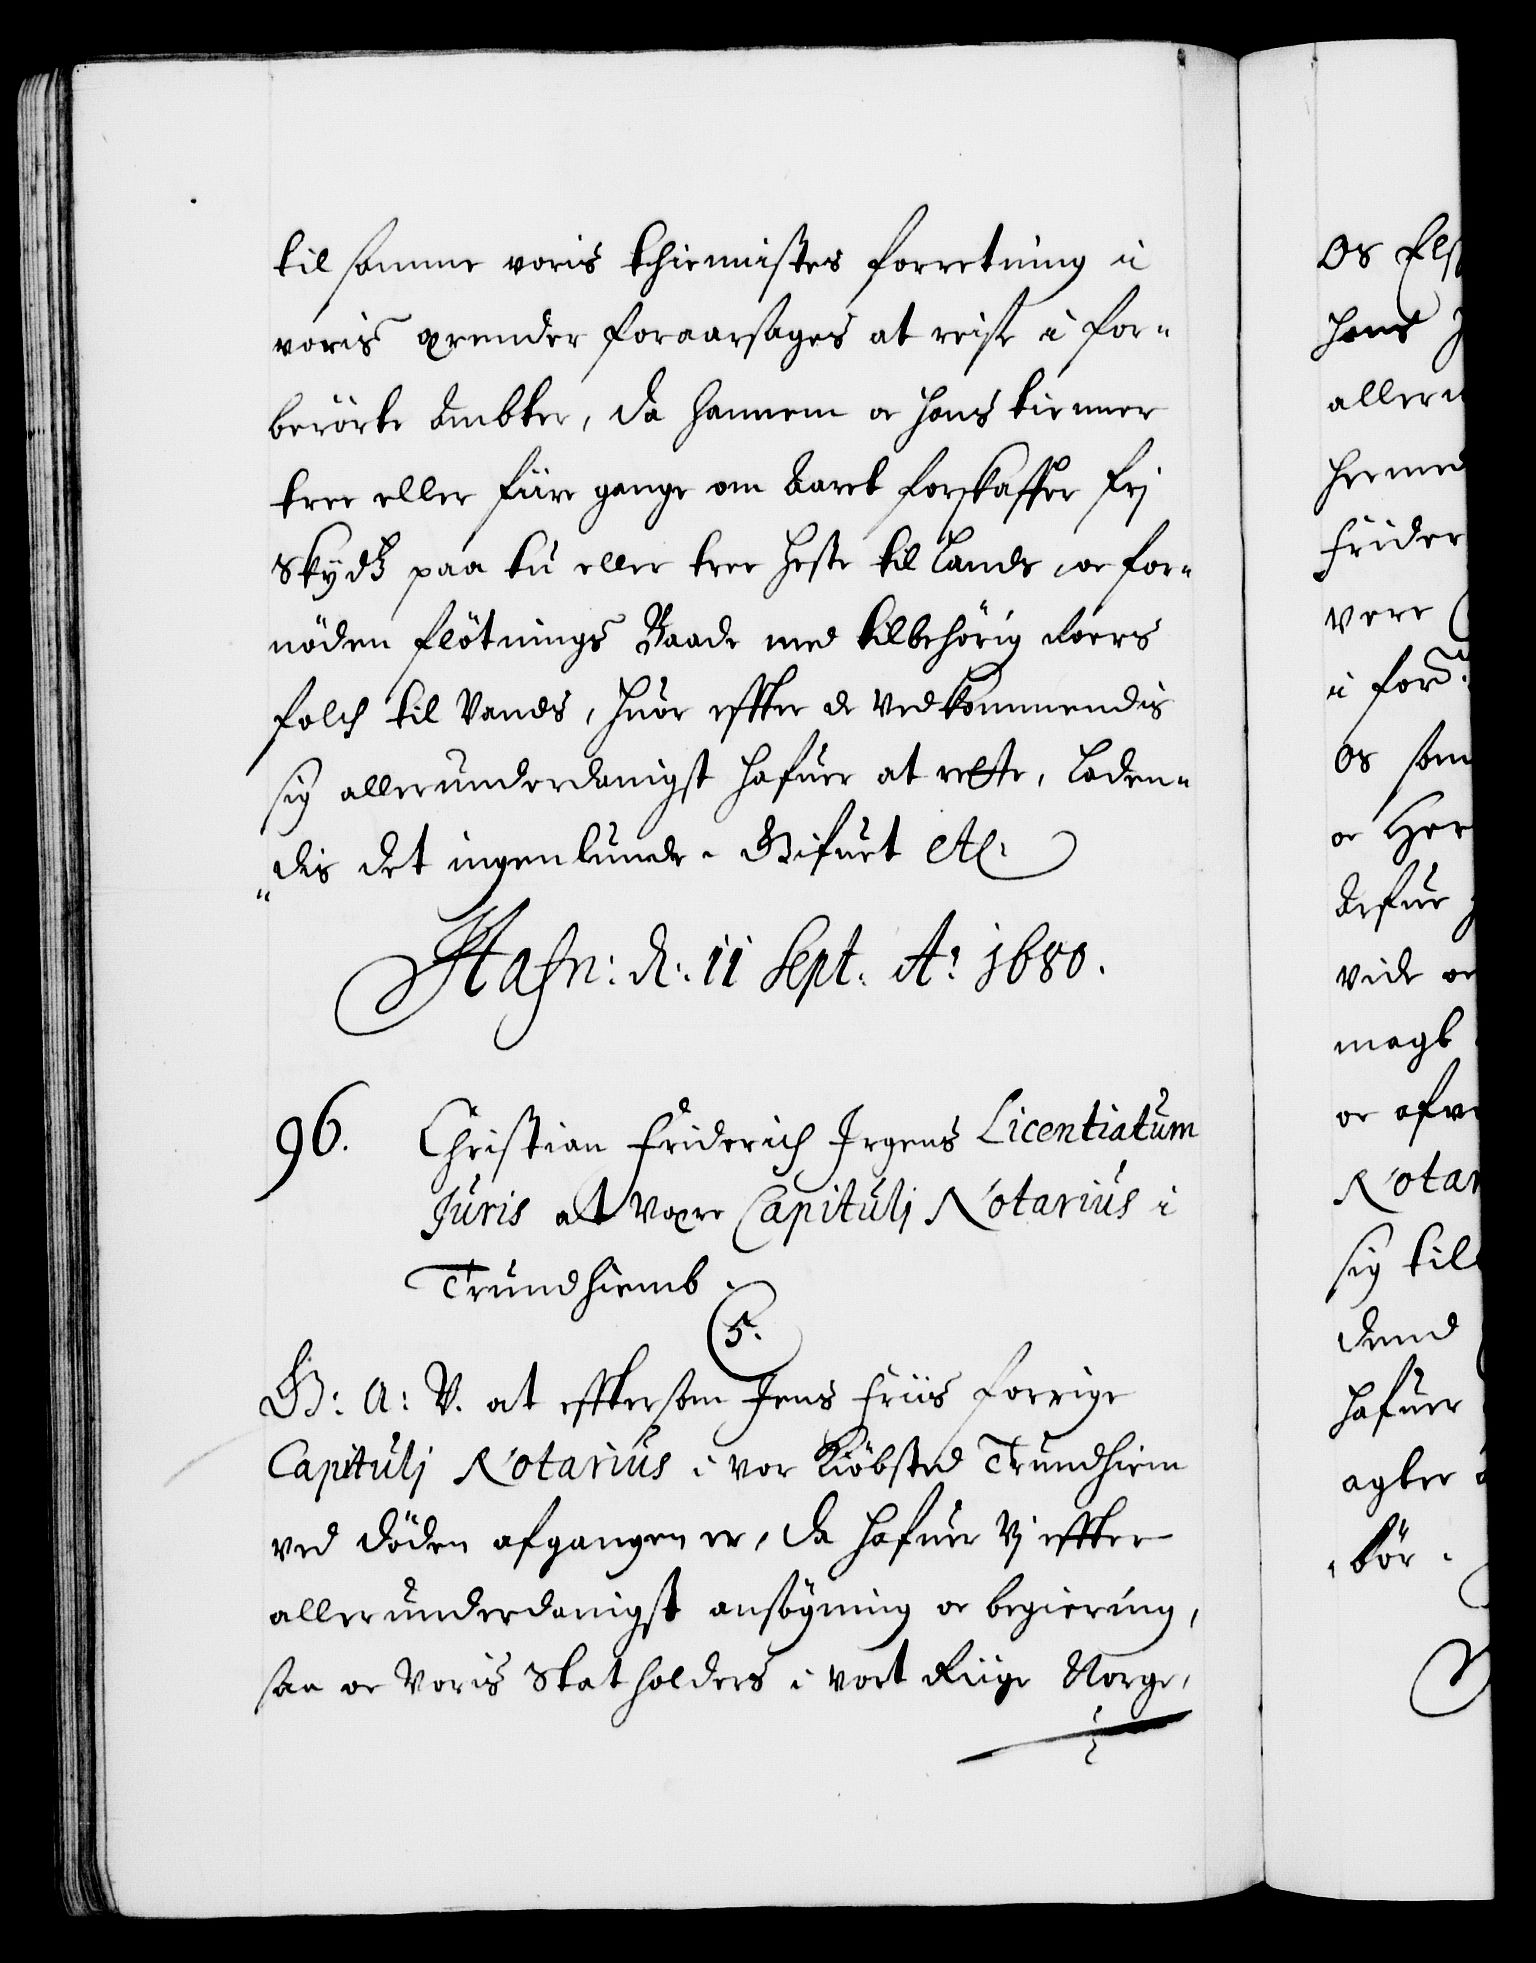 til samme voris thienistes forretning i
voris ærender foraarsages at reise i for-
berörte Ambter, da hannem oc hans tienner
tree eller fiire gange om Aaret forskaffer frj
Skydtz paa tu eller tree Heste til Lands, oc for-
nöden flötnings Baade med tilbehörig Roers
folch til Vands, huor effter de Vedkommendis
sig allerunderdanigst hafuer at rette, Laden-
dis det ingenlunde. Gifuet etc.
Hafn: d: 11 Sept. Ao 1680.
96. Christian Friderich Irgens Licentiatum
Juris at Være Capitulj Notarius i
Trundhiemb.
5.
G: A: V. at efftersom Jens Friis forrige
Capitulj Notarius i vor Kiöbsted Trundhiem
ved döden afgangen er, da hafuer Vj effter
allerunderdanigst ansögning oc begiering,
saa oc Voris Statholders i vort Riige Norge,
Os
hans
allern
herme
Frider
vere
i
os som
oc Her
vide oc
magt
oc
Notar
sig til
dend
hafuer
agter
bör.